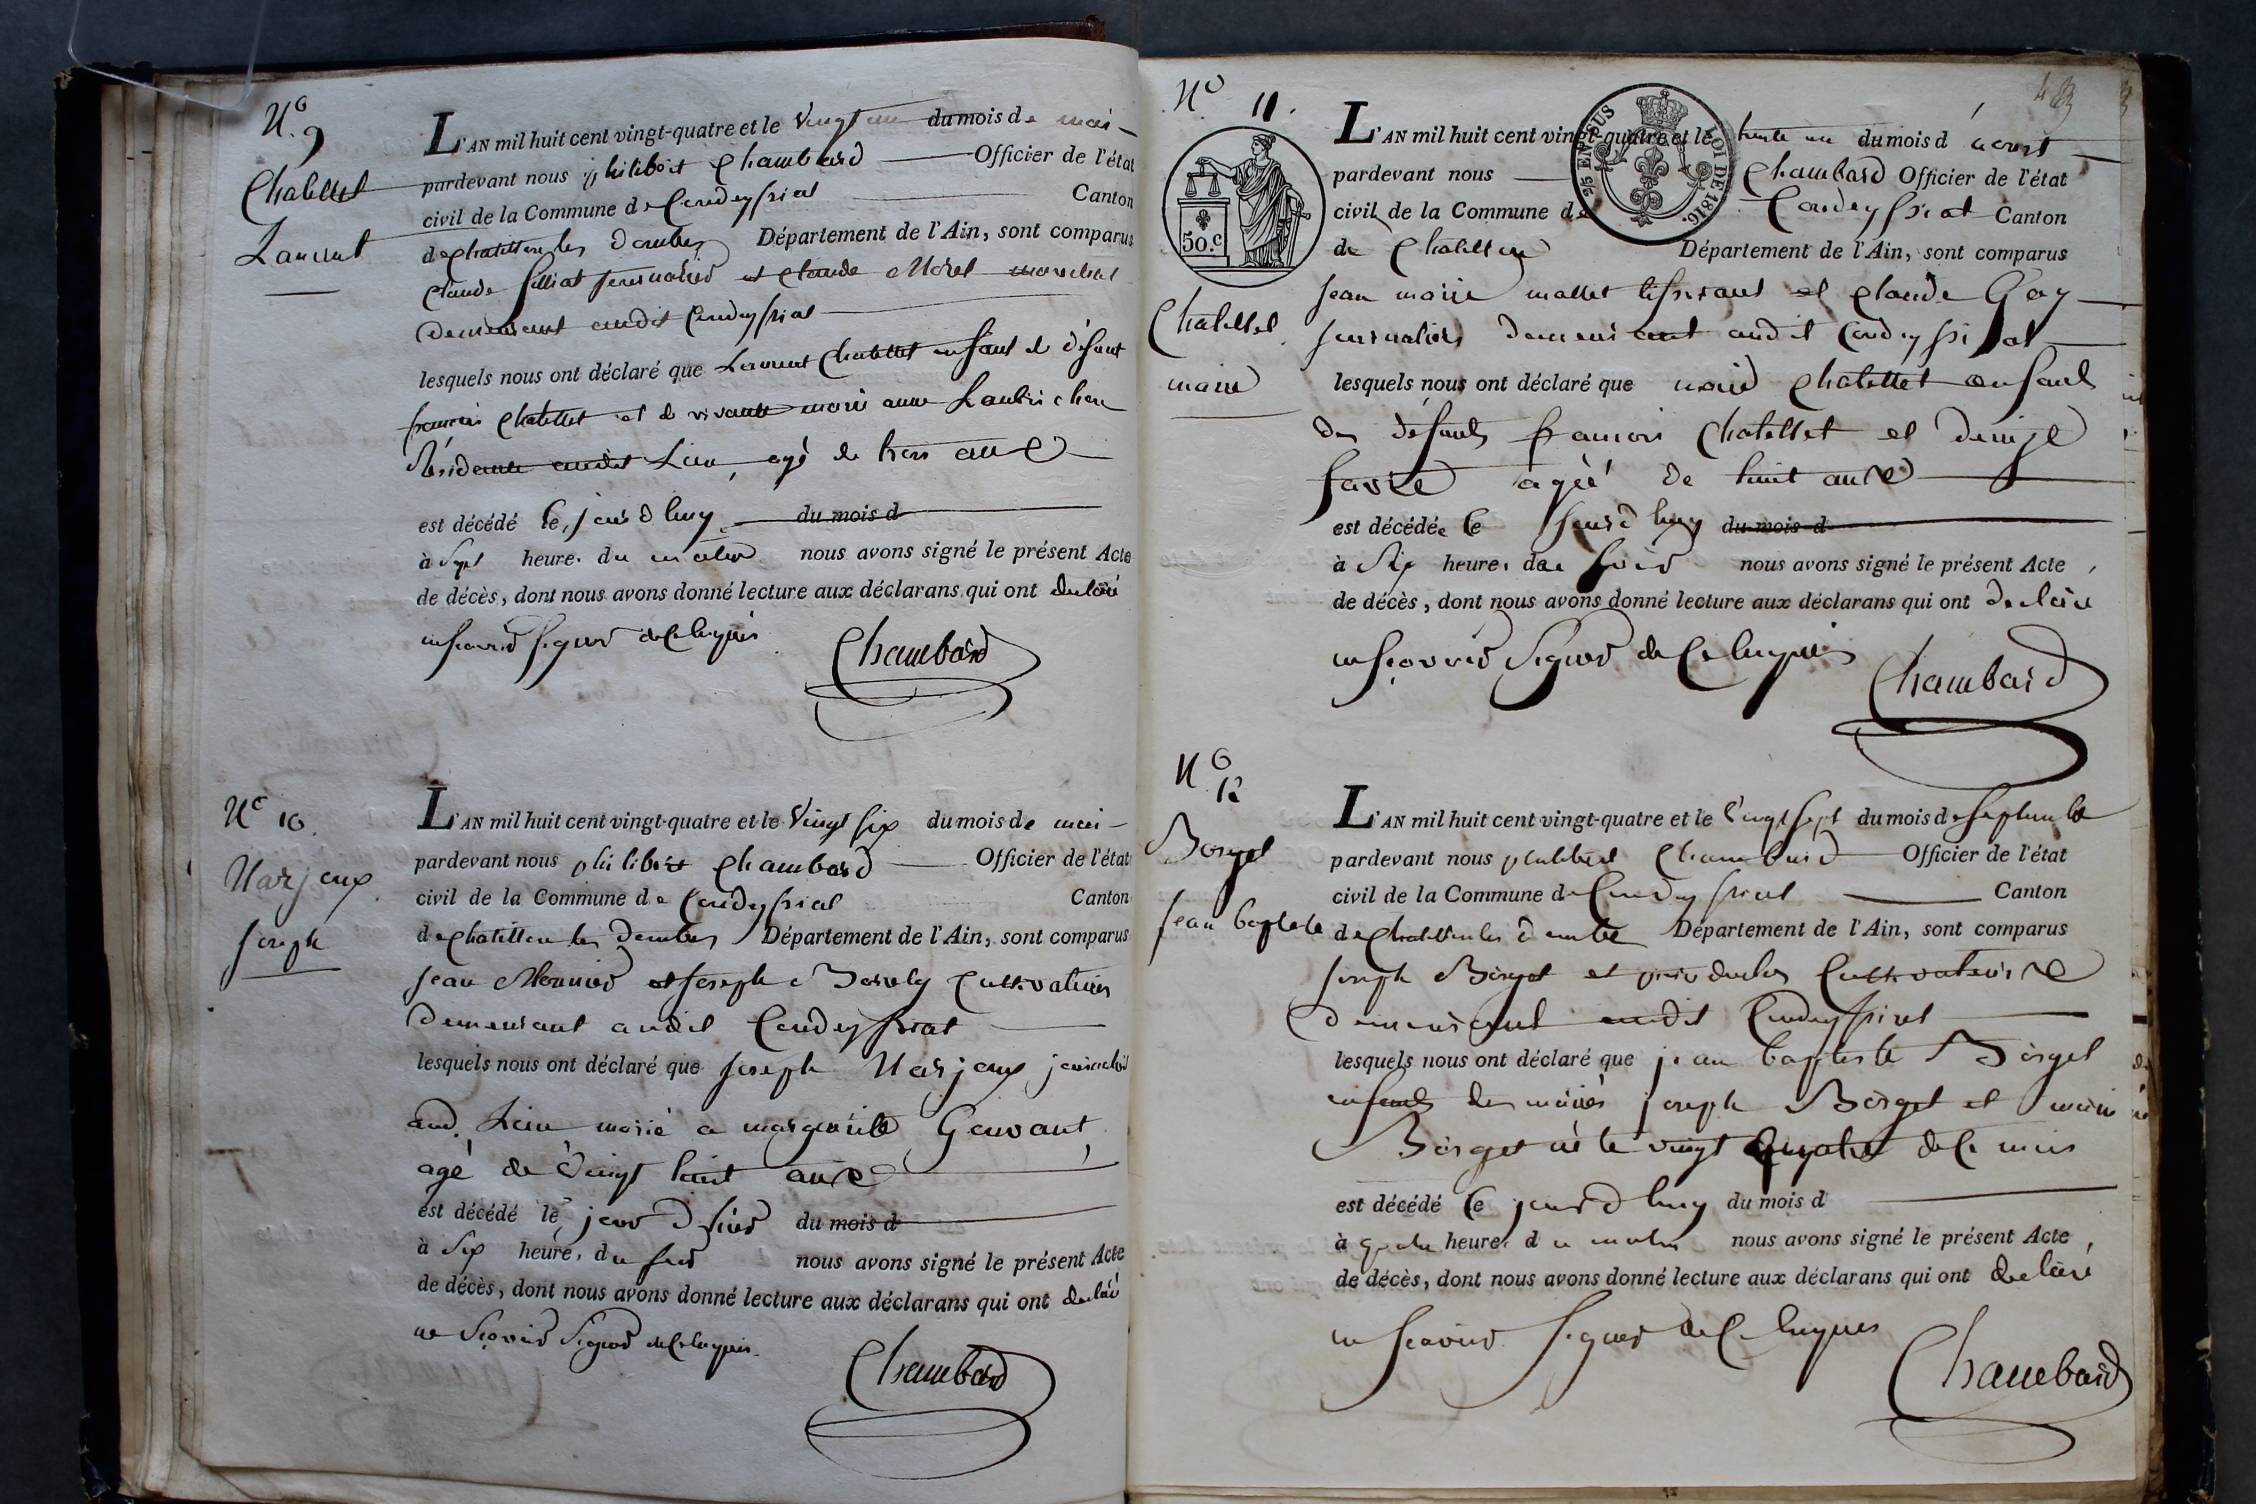 N° 9
Chatellet
Laurent
L'AN mil huit cent vingt-quatre et le vingt un du mois de mai
pardevant nous philibert Chambard Officier de l'état
civil de la Commune de Condeyssiat Canton
de chatillon les dombes Département de l'Ain, sont comparus
Claude journalier et Claude Morel marechal
demeurant audit Condeyssiat
lesquels nous ont déclaré que Laurent Chatellet enfant de défunt
francois Chatellet et de vivante marie anne
Résidante audit Lieu, agé de trois ans
est décédé le jourd'huy du mois d
à Sept heures du matin nous avons signé le présent Acte
de décès, dont nous avons donné lecture aux déclarans qui ont declaré
ne scavoir signer de ce requis
Chambard
N° 10.
Marjoux
joseph
L'AN mil huit cent vingt-quatre et le Vingt six du mois de mai
pardevant nous philibert Chambard Officier de l'état
civil de la Commune de Condeyssiat Canton
de chatillon les dombes Département de l'Ain, sont comparus
jean Monnier et joseph Cultivateurs
demeurant audit Condeyssiat
lesquels nous ont déclaré que joseph Marjoux journalier
aud. Lieu marié a marguerite
agé de Vingt huit ans
est décédé le jour d'hier du mois d
à Six heures du soir nous avons signé le présent Acte
de décès, dont nous avons donné lecture aux déclarans qui ont declaré
ne Scavoir Signer de Ce requis
Chambard
43
N° 11.
50.c
25 EN SUS
LOI DE 1816.
Chatellet
marie
L'AN mil huit cent vingt-quatre et le trente un du mois d'aoust
pardevant nous Chambard Officier de l'état
civil de la Commune de Condeyssiat Canton
de Chatillon Département de l'Ain, sont comparus
jean marie mallet tisserant et Claude Gay
journaliers demeurant audit Condeyssiat
lesquels nous ont déclaré que marie Chatellet enfant
des défunts francois Chatellet et denize
favre agée de huit ans
est décédée le jourd'huy du mois d
à Six heures du soir nous avons signé le présent Acte
de décès, dont nous avons donné lecture aux déclarans qui ont declaré
ne scavoir Signer de Ce requis
Chambard
N° 12
Borget
jean baptiste
L'AN mil huit cent vingt-quatre et le vingt sept du mois de septembre
pardevant nous philibert Chambard Officier de l'état
civil de la Commune de Condeyssiat Canton
de Chatillon les dombes Département de l'Ain, sont comparus
joseph Borget et Cultivateurs
demeurant audit Condeyssiat
lesquels nous ont déclaré que jean baptiste Borget
enfant des mariés joseph Borget et marie
Borget né le vingt quatre de Ce mois
est décédé le jourd'huy du mois d
à quatre heures du matin nous avons signé le présent Acte
de décès, dont nous avons donné lecture aux déclarans qui ont declaré
ne scavoir signer de Ce requis
Chambard